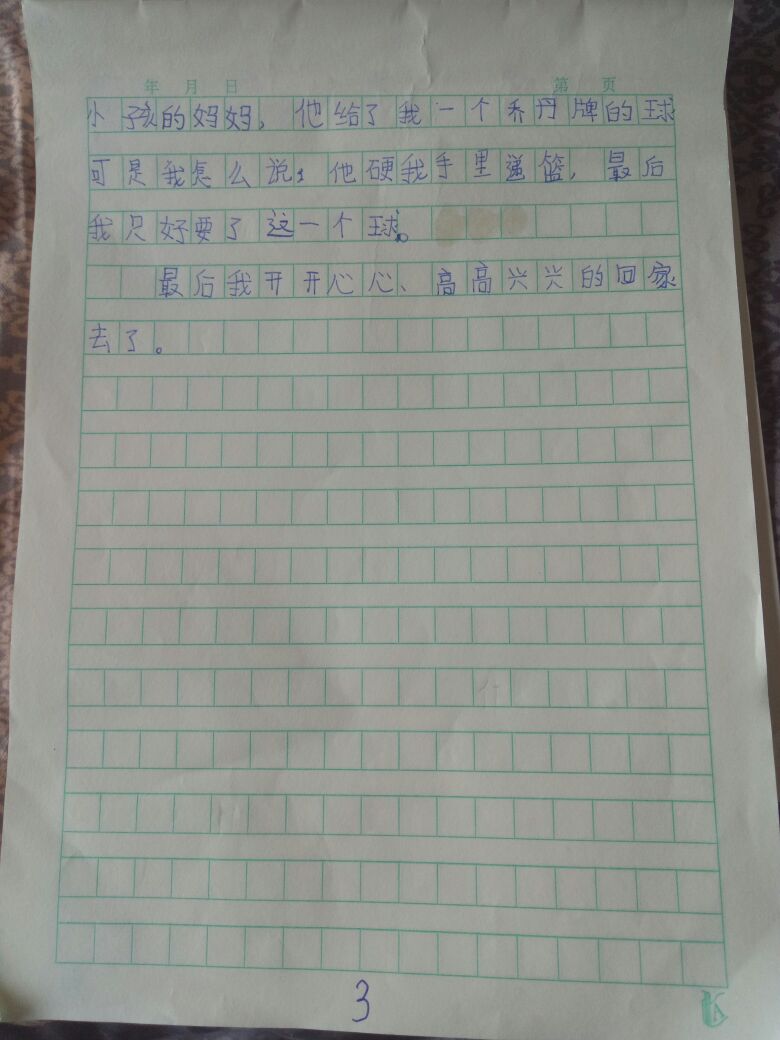 年 月 日 第 页
小孩的妈妈，他给了我一个乔丹牌的球
可是我怎么说，他硬我手里递篮，最后
我只好要了这一个球。
最后我开开心心、高高兴兴的回家
去了。
3